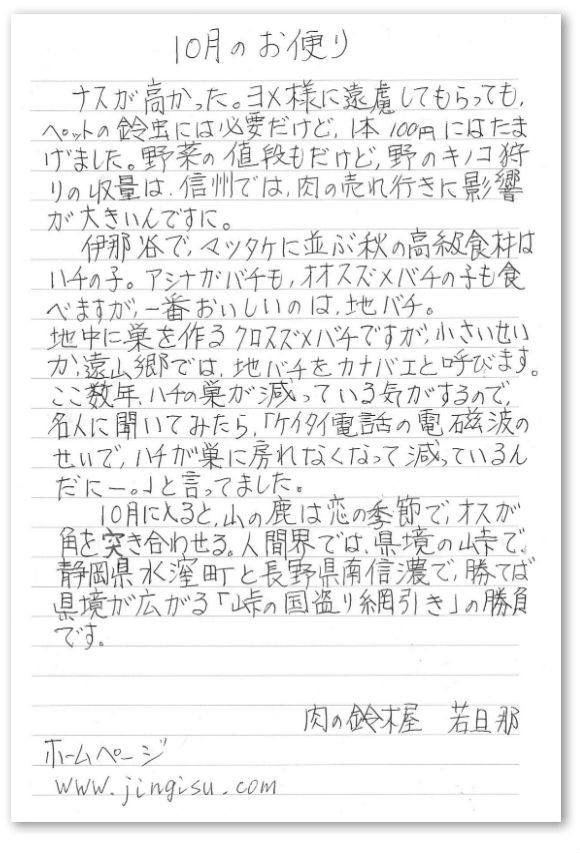 10月のお便り
ナスが高かった。ヨメ様に遠慮してもらっても、
ペットの鈴虫には必要だけど、1本100円にはたま
げました。野菜の値段もだけど、野のキノコ狩
りの収量は、信州では、肉の売れ行きに影響
が大きいんですに。
伊那谷で、マツタケに並ぶ秋の高級食材は
ハチの子。アシナガバチも、オオスズメバチの子も食
べますが、一番おいしいのは、地バチ。
地中に巣を作るクロスズメバチですが、小さいせい
か、遠山郷では、地バチをカナバエと呼びます。
ここ数年、ハチの巣が減っている気がするので、
名人に聞いてみたら、「ケイタイ電話の電磁波の
せいで、ハチが巣に戻れなくなって減っているん
だにー。」と言ってました。
10月に入ると、山の鹿は恋の季節で、オスが
角を突き合わせる。人間界では、県境の峠で、
静岡県水窪町と長野県南信濃で、勝てば
県境が広がる「峠の国盗り綱引き」の勝負
です。
肉の鈴木屋 若旦那
ホームページ
www.jingisu.com